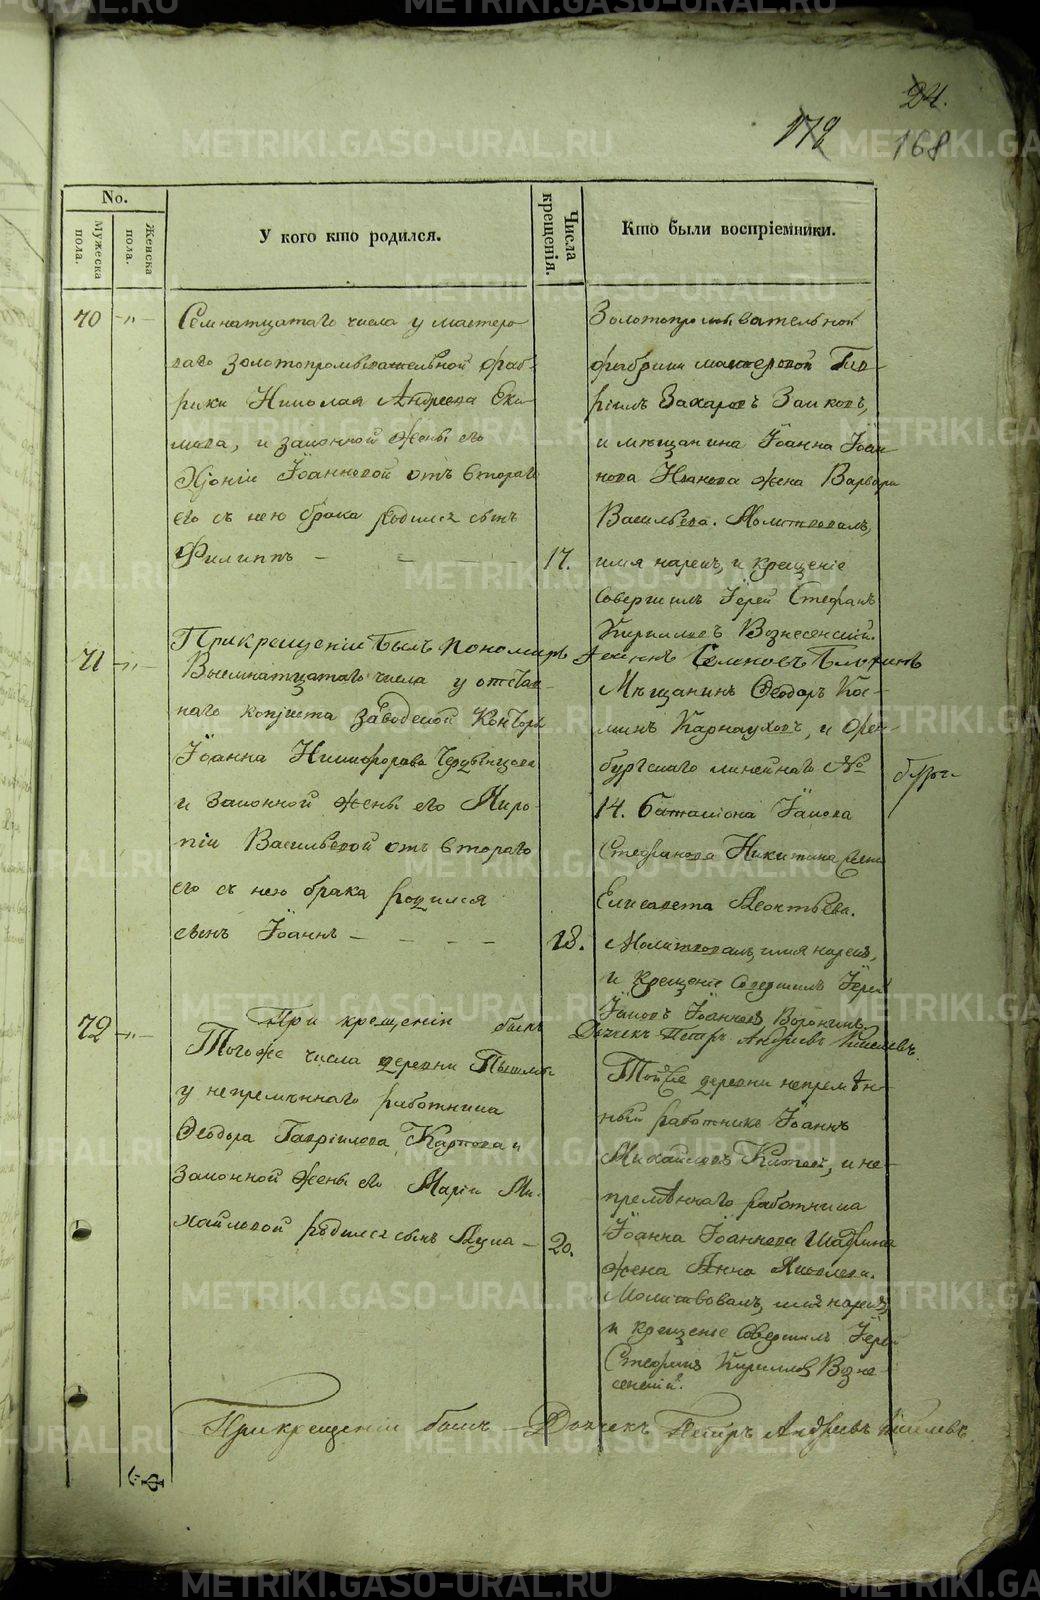 24.
179
168
No.
Мужеска пола.
Женска пола.
У кого кто родился.
Числа крещенія.
Кто были воспріемники.
70 -"-
Семнатцатаго числа у мастеро
ваго золотопромывательной фаб-
рики Николая Андреева Еки-
мова, и законной жены его
Хіоніи Іоанновой отъ втораго
его съ нею брака родился сынъ
Филиппъ -
17.
Золотопромывательной
фабрики мастеровой Гав-
ріилъ Захаровъ Заиковъ,
и мѣщанина Іоанна Іоан
нова Иванова жена Варвара
Васильева. Молитвовалъ,
имя нарекъ, и крещеніе
совершилъ Іерей Стефанъ
Кирилловъ Вознесенскій.
При крещеніи былъ пономарь
71 -"-
Восемнатцатаго числа у отстав-
наго копіиста заводской Конторы
Іоанна Никифорова
и законной жены его Миро-
піи Васильевой отъ втораго
его съ нею брака родился
сынъ Іоаннъ -
18.
Мѣщанинъ Ѳеодоръ Кос-
минъ Карнауховъ, и Орен-
бургскаго линейнаго №
14. баталіона Іакова
Стефанова Никитина жена
Елисавета Леонтьева.
Молитвовалъ, имя нарекъ,
и крещеніе совершилъ Іерей
Іаковъ Іоанновъ Воронинъ.
При крещеніи былъ Дьячекъ Петръ Андреевъ Киселевъ.
72 -"-
Тогоже числа деревни Пышмы
у непремѣннаго работника
Ѳеодора Гавріилова Карпова и
законной жены его Маріи Ми-
хайловой родился сынъ Лука -
20.
Тойже деревни непремѣн-
ный работникъ Іоаннъ
Михайловъ и не-
премѣннаго работника
Іоанна Іоаннова
жена Анна Яковлева.
Молитвовалъ, имя нарекъ,
и крещеніе совершилъ Іерей
Стефанъ Кирилловъ Возне-
сенскій.
При крещеніи былъ Дьячекъ Петръ Андреевъ Киселевъ.
METRIKI.GASO-URAL.RU